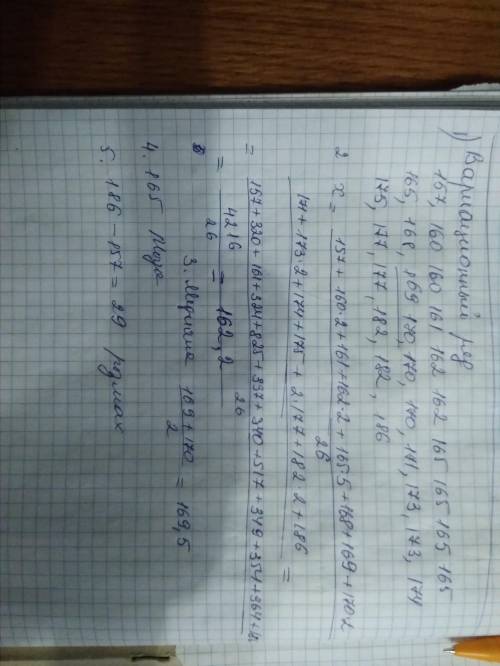 1) Вариационный ряд
157, 160 160 161 162 162 165 165 165 165
165, 168, 169 170, 170, 170, 171, 173, 173, 174
175, 177, 177, 182, 182, 186
2 x = 157 + 160·2 + 161 + 162·2 + 165·5 + 168 + 169 + 170·2
26
171 + 173·2 + 174 + 175 + 2·177 + 182·2 + 186 =
= 157 + 320 + 161 + 324 + 825 + 337 + 340 + 517 + 349 + 354 + 364 +
26
= 4216 / 26 = 162,2
3. Медиана 169 + 170 / 2 = 169,5
4. 165 Мода
5. 186 - 157 = 29 Размах